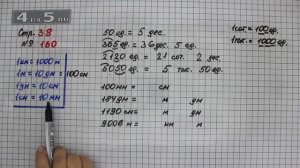 4 да 5 .ru
Стр. 38
№ 160
1 км = 1000 м
1 м = 10 дм = 100 см
1 дм = 10 см
1 см = 10 мм
50 ед. = 5 дес.
365 ед. = 36 дес. 5 ед.
2120 ед. = 21 сот. 2 дес.
5050 ед. = 5 тыс. 50 ед.
100 мм = см
184 дм = м дм
1190 см = м
9006 м = км м
1 сот = 100 ед.
1 тыс. = 1000 ед.